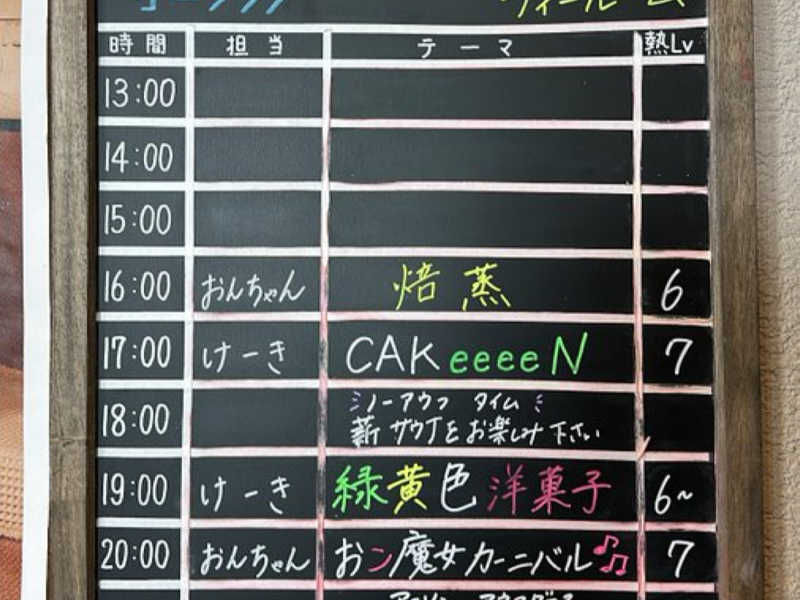 時間 担当 テーマ 熱Lv
13:00
14:00
15:00
16:00 おんちゃん 焙蒸 6
17:00 けーき CAKeeeeN 7
18:00 ノーアウフ タイム
薪サウナをお楽しみ下さい
19:00 けーき 緑黄色洋菓子 6~
20:00 おんちゃん おン魔女カーニバル 7